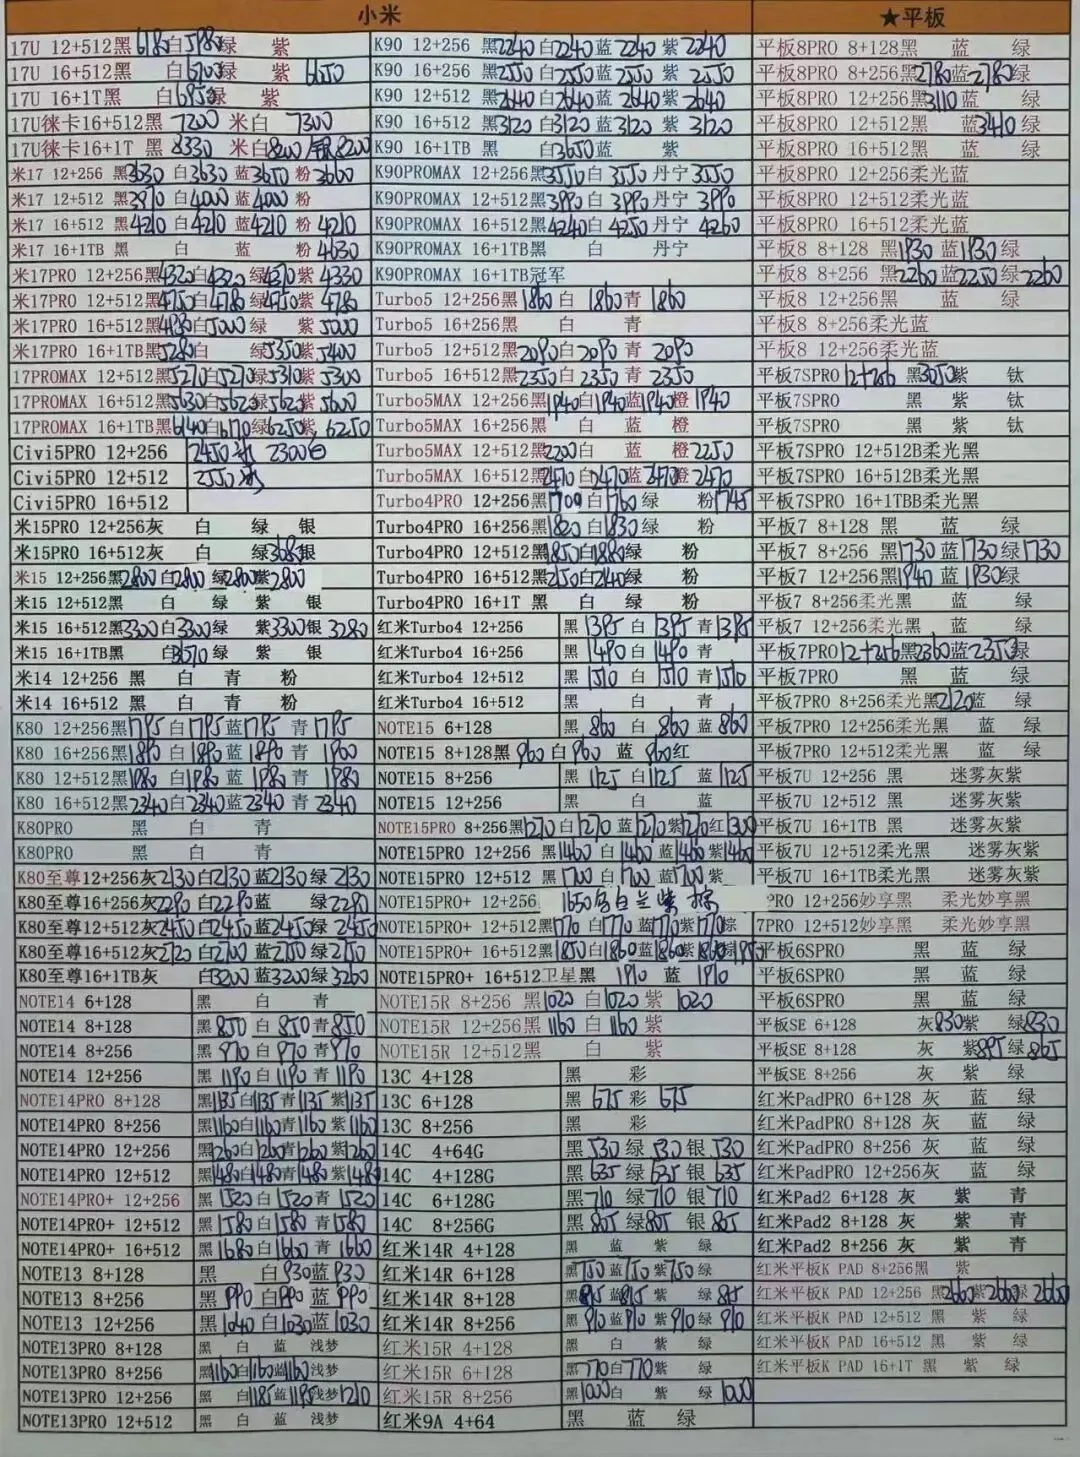 小米
17U 12+512黑6180白5980绿 紫
17U 16+512黑 白6700绿 紫6650
17U 16+1T黑 白6950绿 紫
17U徕卡16+512黑 7200 米白 7300
17U徕卡16+1T 黑 8330 米白8200/银8200
米17 12+256 黑3630白3630蓝3650粉3660
米17 12+512 黑3970白4000蓝4000粉
米17 16+512 黑4210白4210蓝4210粉4210
米17 16+1TB 黑 白 蓝 粉4630
米17PRO 12+256黑4320白4320绿4370紫4330
米17PRO 12+512黑4750白4780绿4750紫4780
米17PRO 16+512黑4930白5000绿 紫5000
米17PRO 16+1TB黑5280白 绿5350紫5400
17PROMAX 12+512黑5270白5270绿5310紫5300
17PROMAX 16+512黑5630白5620绿5620紫5600
17PROMAX 16+1TB黑6140白6170绿6250紫6250
Civi5PRO 12+256 2450 2300白
Civi5PRO 12+512 2550
Civi5PRO 16+512
米15PRO 12+256灰 白 绿 银
米15PRO 16+512灰 白 绿3680银
米15 12+256黑2800白2800绿2800紫2800
米15 12+512黑 白 绿 紫 银
米15 16+512黑3300白3300绿 紫3300银3280
米15 16+1TB黑 白3570绿 紫 银
米14 12+256 黑 白 青 粉
米14 16+512 黑 白 青 粉
K80 12+256黑1795白1795蓝1795青1795
K80 16+256黑1890白1890蓝1890青1900
K80 12+512黑1980白1980蓝1980青1980
K80 16+512黑2340白2340蓝2340青2340
K80PRO 黑 白 青
K80PRO 黑 白 青
K80至尊12+256灰2130白2130蓝2130绿2130
K80至尊16+256灰2290白2290蓝 绿2290
K80至尊12+512灰2450白2450蓝2450绿2450
K80至尊16+512灰2720白2700蓝2750绿2750
K80至尊16+1TB灰 白3200蓝3200绿3260
NOTE14 6+128 黑 白 青
NOTE14 8+128 黑850白850青850
NOTE14 8+256 黑970白970青970
NOTE14 12+256 黑1190白1190青1190
NOTE14PRO 8+128 黑1135白1135青1135紫1135
NOTE14PRO 8+256 黑1160白1160青1160紫1160
NOTE14PRO 12+256 黑1260白1260青1260紫1260
NOTE14PRO 12+512 黑1480白1480青1480紫1480
NOTE14PRO+ 12+256 黑1520白1520青1520
NOTE14PRO+ 12+512 黑1580白1580青1580
NOTE14PRO+ 16+512 黑1680白1660青1660
NOTE13 8+128 黑 白930蓝930
NOTE13 8+256 黑990白990蓝990
NOTE13 12+256 黑1040白1030蓝1030
NOTE13PRO 8+128 黑 白 蓝 浅梦
NOTE13PRO 8+256 黑1160白1160蓝1160浅梦
NOTE13PRO 12+256 黑 白1185蓝1195浅梦1210
NOTE13PRO 12+512 黑 白 蓝 浅梦
K90 12+256 黑2240白2240蓝2240紫2240
K90 16+256 黑2550白2550蓝2550紫2550
K90 12+512 黑2640白2640蓝2640紫2640
K90 16+512 黑3120白3120蓝3120紫3120
K90 16+1TB 黑 白3650蓝 紫
K90PROMAX 12+256黑3550白3550丹宁3550
K90PROMAX 12+512黑3990白3990丹宁3990
K90PROMAX 16+512黑4240白4250丹宁4260
K90PROMAX 16+1TB黑 白 丹宁
K90PROMAX 16+1TB冠军
Turbo5 12+256黑1860白1860青1860
Turbo5 16+256黑 白 青
Turbo5 12+512黑2090白2090青2090
Turbo5 16+512黑2350白2350青2350
Turbo5MAX 12+256黑1940白1940蓝1940橙1940
Turbo5MAX 16+256黑 白 蓝 橙
Turbo5MAX 12+512黑2200白 蓝 橙2250
Turbo5MAX 16+512黑2470白2470蓝2470橙2470
Turbo4PRO 12+256黑1700白1760绿 粉1745
Turbo4PRO 16+256黑1820白1830绿 粉
Turbo4PRO 12+512黑1850白1880绿 粉
Turbo4PRO 16+512黑2150白2140绿 粉
Turbo4PRO 16+1T 黑 白 绿 粉
红米Turbo4 12+256 黑1395白1395青1395
红米Turbo4 16+256 黑1490白1490青
红米Turbo4 12+512 黑1510白1510青1510
红米Turbo4 16+512 黑 白 青
NOTE15 6+128 黑860白860蓝860
NOTE15 8+128黑960白960蓝960红
NOTE15 8+256 黑1125白1125蓝1125
NOTE15 12+256 黑 白 蓝
NOTE15PRO 8+256黑1270白1270蓝1270紫1270红1300
NOTE15PRO 12+256 黑1460白1460蓝1460紫1460
NOTE15PRO 12+512 黑1700白1700蓝1700紫
NOTE15PRO+ 12+256 1650 白 紫
NOTE15PRO+ 12+512黑1770白1770蓝1770紫1770棕
NOTE15PRO+ 16+512黑1850白1860蓝1860紫1860棕1950
NOTE15PRO+ 16+512卫星黑 1910 蓝 1910
NOTE15R 8+256 黑1020白1020紫1020
NOTE15R 12+256黑1160白1160紫
NOTE15R 12+512黑 白 紫
13C 4+128 黑 彩
13C 6+128 黑675彩675
13C 8+256 黑 彩
14C 4+64G 黑530绿530银530
14C 4+128G 黑635绿635银635
14C 6+128G 黑710绿710银710
14C 8+256G 黑805绿805银805
红米14R 4+128 黑 蓝 紫 绿
红米14R 6+128 黑750蓝750紫750绿
红米14R 8+128 黑815蓝815紫 绿815
红米14R 8+256 黑910蓝910紫910绿910
红米15R 4+128 黑 白 紫 绿
红米15R 6+128 黑770白770紫 绿
红米15R 8+256 黑1000白 紫 绿1000
红米9A 4+64 黑 蓝 绿
★平板
平板8PRO 8+128黑 蓝 绿
平板8PRO 8+256黑2780蓝2780绿
平板8PRO 12+256黑3110蓝 绿
平板8PRO 12+512黑 蓝3410绿
平板8PRO 16+512黑 蓝 绿
平板8PRO 12+256柔光蓝
平板8PRO 12+512柔光蓝
平板8PRO 16+512柔光蓝
平板8 8+128 黑1930蓝1930绿
平板8 8+256 黑2260蓝2250绿2260
平板8 12+256黑 蓝 绿
平板8 8+256柔光蓝
平板8 12+256柔光蓝
平板7SPRO 12+256 黑3050紫 钛
平板7SPRO 黑 紫 钛
平板7SPRO 黑 紫 钛
平板7SPRO 12+512B柔光黑
平板7SPRO 16+512B柔光黑
平板7SPRO 16+1TBB柔光黑
平板7 8+128 黑 蓝 绿
平板7 8+256 黑1730蓝1730绿1730
平板7 12+256黑1940蓝1930绿
平板7 8+256柔光黑 蓝 绿
平板7 12+256柔光黑 蓝 绿
平板7PRO12+256黑2360蓝2350绿
平板7PRO 黑 蓝 绿
平板7PRO 8+256柔光黑2120蓝 绿
平板7PRO 12+256柔光黑 蓝 绿
平板7PRO 12+512柔光黑 蓝 绿
平板7U 12+256 黑 迷雾灰紫
平板7U 12+512 黑 迷雾灰紫
平板7U 16+1TB 黑 迷雾灰紫
平板7U 12+512柔光黑 迷雾灰紫
平板7U 16+1TB柔光黑 迷雾灰紫
7PRO 12+256妙享黑 柔光妙享黑
7PRO 12+512妙享黑 柔光妙享黑
平板6SPRO 黑 蓝 绿
平板6SPRO 黑 蓝 绿
平板6SPRO 黑 蓝 绿
平板SE 6+128 灰830紫 绿830
平板SE 8+128 灰 紫895绿865
平板SE 8+256 灰 紫 绿
红米PadPRO 6+128 灰 蓝 绿
红米PadPRO 8+128 灰 蓝 绿
红米PadPRO 8+256 灰 蓝 绿
红米PadPRO 12+256灰 蓝 绿
红米Pad2 6+128 灰 紫 青
红米Pad2 8+128 灰 紫 青
红米Pad2 8+256 灰 紫 青
红米平板K PAD 8+256黑 紫
红米平板K PAD 12+256 黑2660紫2660绿2660
红米平板K PAD 12+512 黑 紫 绿
红米平板K PAD 16+512 黑 紫 绿
红米平板K PAD 16+1T 黑 紫 绿